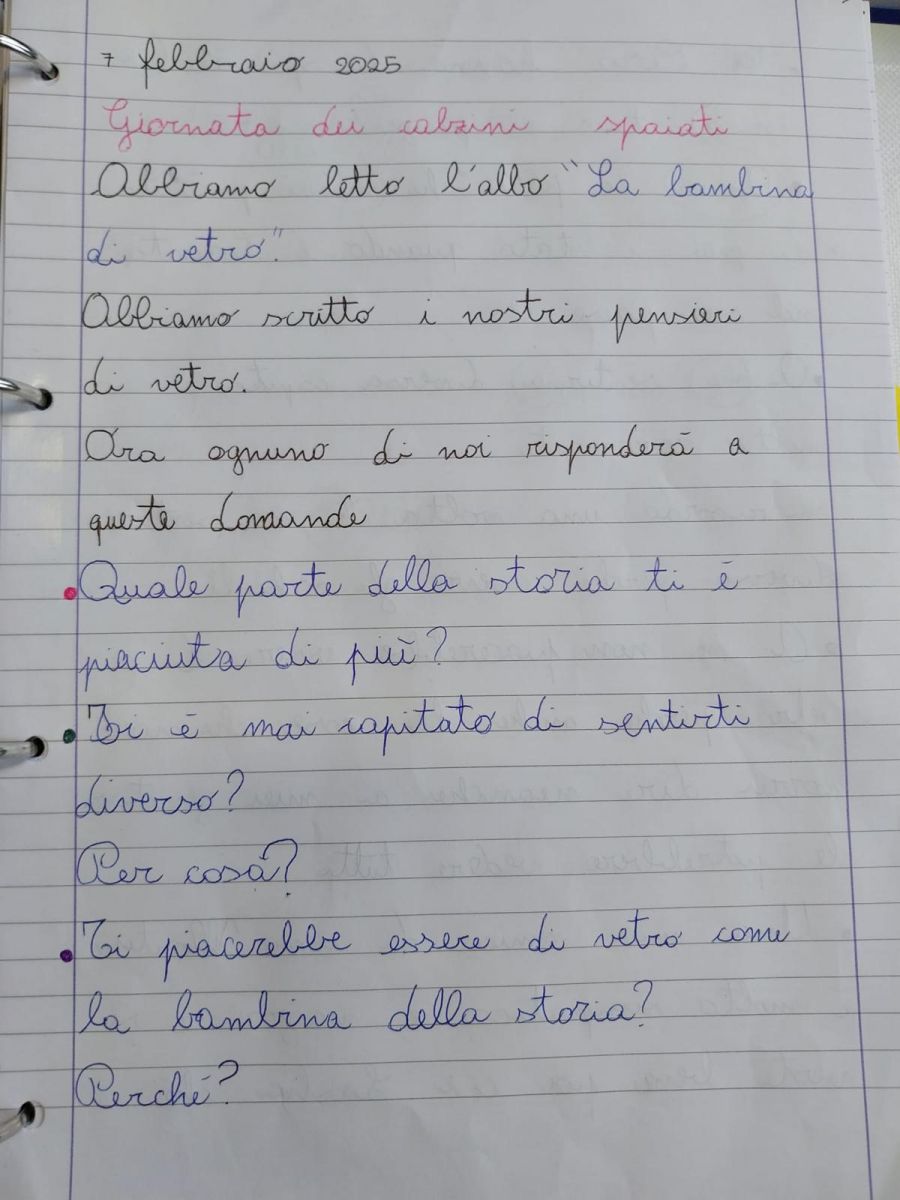 7 febbraio 2025
Giornata dei calzini spaiati
Abbiamo letto l'albo "La bambina
di vetro".
Abbiamo scritto i nostri pensieri
di vetro.
Ora ognuno di noi risponderà a
queste domande
• Quale parte della storia ti è
piaciuta di più?
• Ti è mai capitato di sentirti
diverso?
Per cosa?
• Ti piacerebbe essere di vetro come
la bambina della storia?
Perché?